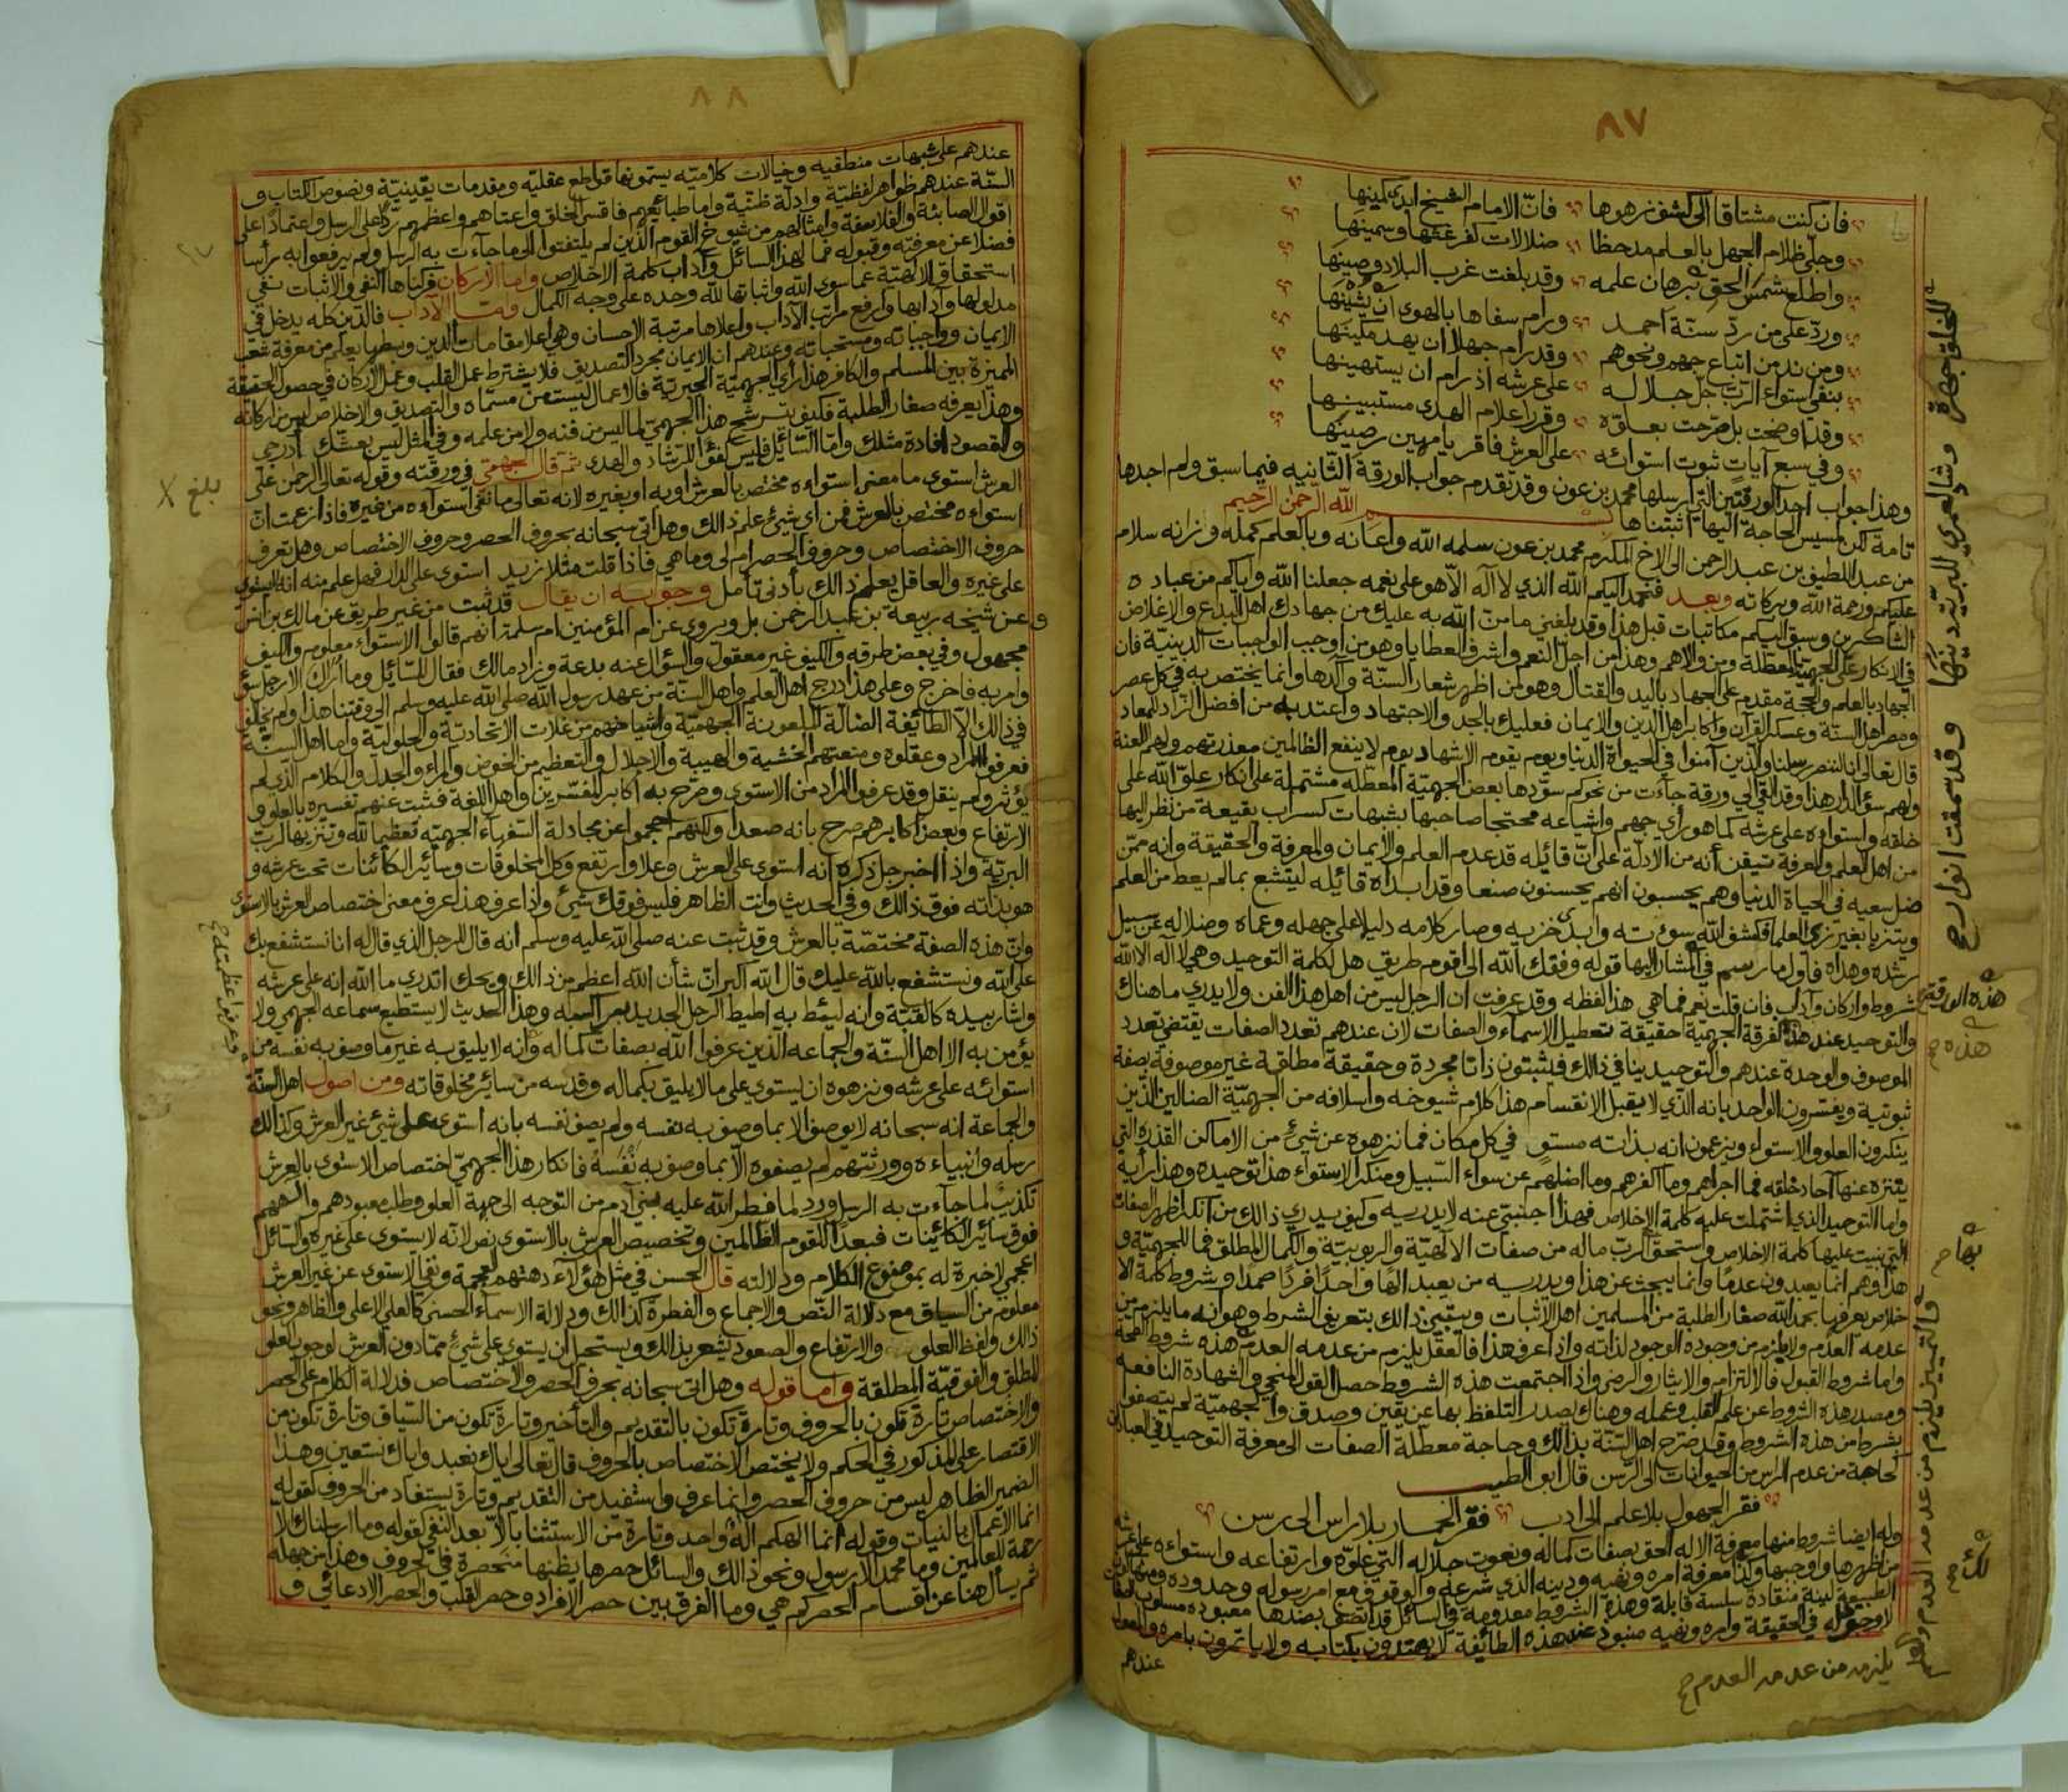 ٨٧
فان كنت مشتاقا الى كشف زهوها فان الامام الشيخ ابدى كمينها
وجلى ظلام الجهل بالعلم مدحظا ضلالات لفر غثها وسمينها
واطلع شمس الحق برهان علمه وقد بلغت غرب البلاد وصينها
ورد على من رد سنة احمد ورام سفاها بالهوى ان يشينها
ومن ند من اتباع جهم ونحوهم وقد رام جهلا ان يهد متينها
بنفي استواء الرب جل جلاله على عرشه اذ رام ان يستهينها
وقد اوضحت بل صرحت بعلوه وقرر اعلام الهدى مستبينها
وفي سبع آيات ثبوت استوائه على العرش فاقر يا مهين رصينها
وهذا جواب احد الورقتين التي ارسلها محمد بن عون وقد تقدم جواب الورقة الثانيه فيما سبق ولم اجدها
تامة لكن لمسيس الحاجة اليها اثبتناها بسم الله الرحمن الرحيم
من عبد اللطيف بن عبد الرحمن الى الاخ المكرم محمد بن عون سلمه الله واعانه وبالعلم كمله وزانه سلام
عليكم ورحمة الله وبركاته وبعد فنحمد اليكم الله الذي لا اله الا هو على نعمه جعلنا الله واياكم من عباده
الشاكرين وسبق اليكم مكاتبات قبل هذا وقد بلغني ما من الله به عليك من جهادك اهل البدع والاغلاض
في الانكار على الجهمية المعطلة ومن والاهم وهذا من اجل النعم واشرف العطايا وهو من اوجب الواجبات الدينية فان
الجهاد بالعلم والحجة مقدم على الجهاد باليد والقتال وهو من اظهر شعار السنة وآكدها وانما يختص به في كل عصر
ومصر اهل السنة وعسكر القرآن واكابر اهل الدين والايمان فعليك بالجد والاجتهاد واعتد به من افضل الزاد للمعاد
قال تعالى انا لننصر رسلنا والذين آمنوا في الحيواة الدنيا ويوم يقوم الاشهاد يوم لا ينفع الظالمين معذرتهم ولهم اللعنة
ولهم سوء الدار هذا وقد القي الي ورقة جاءت من نحوكم سودها بعض الجهمية المعطله مشتملة على انكار علو الله على
خلقه واستواءه على عرشه كما هو رأي جهم واشياعه محتجا صاحبها بشبهات كسراب بقيعة من نظر اليها
من اهل العلم والمعرفة تيقن انه من الادلة على ان قائله قد عدم العلم والايمان والمعرفة والحقيقة وانه ممن
ضل سعيه في الحياة الدنيا وهم يحسبون انهم يحسنون صنعا وقد ابداه قائله ليتشبع بمالم يعط من العلم
ويتزيا بغير زي العلماء فكشف الله سوءته وابدى خزيه وصار كلامه دليلا على جهله وعماه وضلاله عن سبيل
رشده وهداه فاول ما رسم في المشار اليها قوله وفقك الله الى اقوم طريق هل لكلمة التوحيد وهي لا اله الا الله
شروط واركان وآداب فان قلت نعم فما هي هذا لفظه وقد عرفت ان الرجل ليس من اهل هذا الفن ولا يدري ما هناك
والتوحيد عند هذه الفرقة الجهمية حقيقة تعطيل الاسماء والصفات لان عندهم تعدد الصفات يقتضي تعدد
الموصوف والوحدة عندهم والتوحيد ينافي ذالك فيثبتون ذاتا مجردة وحقيقة مطلقة غير موصوفة بصفة
ثبوتية ويفسرون الواحد بانه الذي لا يقبل الانقسام هذا كلام شيوخه واسلافه من الجهمية الضالين الذين
ينكرون العلو والاستواء ويزعمون انه بذاته مستو في كل مكان فما نزهوه عن شيء من الاماكن القذره التي
يتنزه عنها آحاد خلقه فما اجراهم وما اكفرهم وما اضلهم عن سواء السبيل ومنكر الاستواء هذا توحيده وهذا رأيه
واما التوحيد الذي اشتملت عليه كلمة الاخلاص فهذا اجنبي عنه لا يدريه وكيف يدري ذالك من انكر اظهر الصفات
التي بنيت عليها كلمة الاخلاص واستحق الرب ماله من صفات الالهية والربوبية والكمال المطلق فما للجهمية و
هذا وهم انما يعبدون عدما وانما يبحث عن هذا ويدريه من يعبد الها واحدا فردا صمدا وشروط كلمة الا
خلاص يعرفها بحمد الله صغار الطلبة من المسلمين اهل الاثبات ويتبين ذالك بتعريف الشرط وهو انه ما يلزم من
عدمه العدم ولا يلزم من وجوده الوجود لذاته واذا عرف هذا فالعقل يلزم من عدمه العدم هذه شروط الصحة
واما شروط القبول فالالتزام والايثار والرضى واذا اجتمعت هذه الشروط حصل القول المنجي والشهادة النافعه
ومصدر هذه الشروط عن علم القلب وعمله وهناك يصدر التلفظ بها عن يقين وصدق والجهمية لم يتصفوا
بشرط من هذه الشروط وقد صرح اهل السنة بذالك وحاجة معطلة الصفات الى معرفة التوحيد في العبادات
كحاجة من عدم الراس من الحيوانات الى الرسن قال ابو الطيب
فقر الجهول بلا علم الى ادب فقر الحمار بلا راس الى رسن
وله ايضا شروط منها معرفة الاله الحق بصفات كماله ونعوت جلاله التي علوه وارتفاعه واستواءه على عرشه
من اظهرها واوجبها وكذا معرفة امره ونهيه ودينه الذي شرعه والوقوف مع امر رسوله وحدوده ومنها كون
الطبيعة لينة منقادة سلسة قابلة وهذه الشروط معدومة في السائل قد اتصف بضدها معبوده مسلوب الصفات
لا وجود له في الحقيقة وامره ونهيه منبوذ عند هذه الطائفة لا يهتدون بكتابه ولا ياتمرون بامره والمعول
عندهم
للخلق جهرة وشاد لعمري للبرية دينها وقد سمقت انوار ح
هذه الورقة
هذه صح
بها ح
والتمييز يلزم من عدمه العدم والعلم
يلزم من عدمه العدم ح
٨٨
عندهم على شبهات منطقيه وخيالات كلاميه يسمونها قواطع عقليه ومقدمات يقينية ونصوص الكتاب و
السنة عندهم ظواهر لفظية وادلة ظنية واما طبائعهم فاقسى الخلق واعتاهم واعظمهم ردا على الرسل واعتمادا على
اقوال الصابئة والفلاسفة وامثالهم من شيوخ القوم الذين لم يلتفتوا الى ما جاءت به الرسل ولم يرفعوا به رأسا
فضلا عن معرفته وقبوله فما لهذا السائل وآداب كلمة الاخلاص واما الاركان فركناها النفي والاثبات نفي
استحقاق الالهية عما سوى الله واثباتها لله وحده على وجه الكمال واما الآداب فالدين كله يدخل في
مدلولها وآدابها وارفع مراتب الآداب واعلاها مرتبة الاحسان وهي اعلا مقامات الدين وبسطها يعلم من معرفة شعب
الايمان وواجباته ومستحباته وعندهم ان الايمان مجرد التصديق فلا يشترط عمل القلب وعمل الاركان في حصول الحقيقة
المميزة بين المسلم والكافر هذا رأي الجهمية الجبرية فالاعمال ليست من مسماه والتصديق والاخلاص ليس من اركانه
وهذا يعرفه صغار الطلبة فكيف ترشح هذا الجهمي لما ليس من فنه ولا من علمه وفي المثل ليس بعشك ادرجي
والمقصود افادة مثلك واما السائل فليس كفؤا للرشاد والهدى ثم قال الجهمي في ورقته وقوله تعالى الرحمن على
العرش استوى ما معنى استواءه مختص بالعرش او به او بغيره لانه تعالى ما نفى استواءه من غيره فاذا زعمت ان
استواءه مختص بالعرش فمن اي شيء علم ذالك وهل اتى سبحانه بحروف الحصر وحروف الاختصاص وهل تعرف
حروف الاختصاص وحروف الحصر ام لى وما هي فاذا قلت مثلا زيد استوى على الدار فهل علم منه انه لا يستوي
على غيره والعاقل يعلم ذالك بأدنى تأمل وجوابه ان يقال قد ثبت من غير طريق عن مالك بن انس
وعن شيخه ربيعة بن عبد الرحمن بل ويروى عن ام المؤمنين ام سلمة انهم قالوا الاستواء معلوم والكيف
مجهول وفي بعض طرقه والكيف غير معقول والسؤال عنه بدعة وزاد مالك فقال للسائل وما اراك الا رجل سوء
وامر به فاخرج وعلى هذا درج اهل العلم واهل السنة من عهد رسول الله صلى الله عليه وسلم الى وقتنا هذا ولم يخالف
في ذالك الا الطائفة الضالة الملعونة الجهمية واشياخهم من غلات الاتحادية والحلولية واما اهل السنة
فعرفوا المراد وعقلوه ومنعتهم الخشية والهيبة والاجلال والتعظيم من الخوض والمراء والجدل والكلام الذي لم
يؤثر ولم ينقل وقد عرفوا المراد من الاستوى وصرح به اكابر المفسرين واهل اللغة فثبت عنهم تفسيره بالعلو و
الارتفاع وبعض اكابرهم صرح بانه صعد ولكنهم احجموا عن مجادلة السفهاء الجهميه تعظيما لله وتنزيها لرب
البرية واذا اخبر جل ذكره انه استوى على العرش وعلا وارتفع وكل المخلوقات وسائر الكائنات تحت عرشه و
هو بذاته فوق ذالك وفي الحديث وانت الظاهر فليس فوقك شيء واذا عرف هذا عرف معنى اختصاص العرش بالاستوى
وان هذه الصفة مختصة بالعرش وقد ثبت عنه صلى الله عليه وسلم انه قال للرجل الذي قال له انا نستشفع بك
على الله ونستشفع بالله عليك قال الله اكبر ان شأن الله اعظم من ذالك ويحك اتدري ما الله انه على عرشه
واشار بيده كالقبة وانه ليئط به اطيط الرحل الجديد براكبه وهذا الحديث لا يستطيع سماعه الجهمي ولا
يؤمن به الا اهل السنة والجماعه الذين عرفوا الله بصفات كماله وانه لا يليق به غير ما وصف به نفسه من
استوائه على عرشه ونزهوه ان يستوي على ما لا يليق بكماله وقدسه من سائر مخلوقاته ومن اصول اهل السنة
والجماعة انه سبحانه لا يوصف الا بما وصف به نفسه ولم يصف نفسه بانه استوى على شيء غير العرش وكذالك
رسله وانبياءه وورثتهم لم يصفوه الا بما وصف به نفسه فانكار هذا الجهمي اختصاص الاستوى بالعرش
تكذيب لما جاءت به الرسل ورد لما فطر الله عليه بني آدم من التوجه الى جهة العلو وطلب معبودهم والههم
فوق سائر الكائينات فبعدا للقوم الظالمين وتخصيص العرش بالاستوى نص لانه لا يستوي على غيره والسائل
اعجمي لاخبرة له بموضوع الكلام ودلالته قال الحسن في مثل هؤلاء دهتهم العجمة ونفي الاستوى عن غير العرش
معلوم من السياق مع دلالة النص والاجماع والفطرة كذالك ودلالة الاسماء الحسنى كالعلي الاعلى والظاهر ونحو
ذالك ولفظ العلو والارتفاع والصعود يشعر بذالك ويستحيل ان يستوي على شيء مما دون العرش لوجوب العلو
المطلق والفوقية المطلقة واما قوله وهل اتى سبحانه بحرف الحصر والاختصاص فدلالة الكلام على الحصر
والاختصاص تارة تكون بالحروف وتارة تكون بالتقديم والتأخير وتارة تكون من السياق وتارة تكون من
الاقتصار على المذكور في الحكم ولا يختص الاختصاص بالحروف قال تعالى اياك نعبد واياك نستعين وهذا
الضمير الظاهر ليس من حروف الحصر وانما عرف واستفيد من التقديم وتارة يستفاد من الحروف كقوله
انما الاعمال بالنيات وقوله انما الهكم اله واحد وتارة من الاستثنا بالا بعد النفي كقوله وما ارسلناك الا
رحمة للعالمين وما محمد الا رسول ونحو ذالك والسائل حصرها يظنها منحصرة في الحروف وهذا من جهله
ثم يسأل هنا عن اقسام الحصر كم هي وما الفرق بين حصر الافراد وحصر القلب والحصر الادعائي و
بلغ